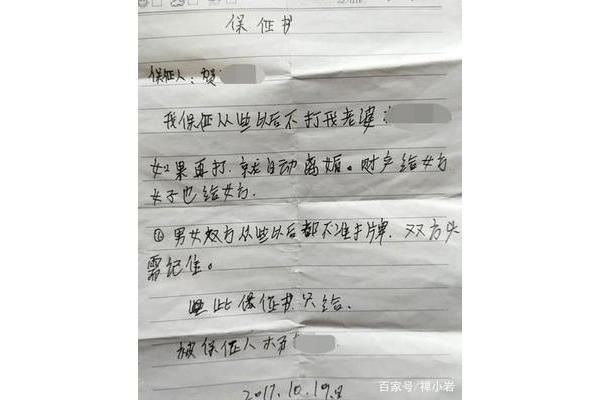 保证书
保证人：贺
我保证从些以后不打我老婆：
如果再打.就自动离婚。财产给女方
女子也给女方.
①男女双方从些以后都不准打牌.双方头
需记住。
此保证书只给.
被保证人
2017.10.19日
百家号/禅小岩